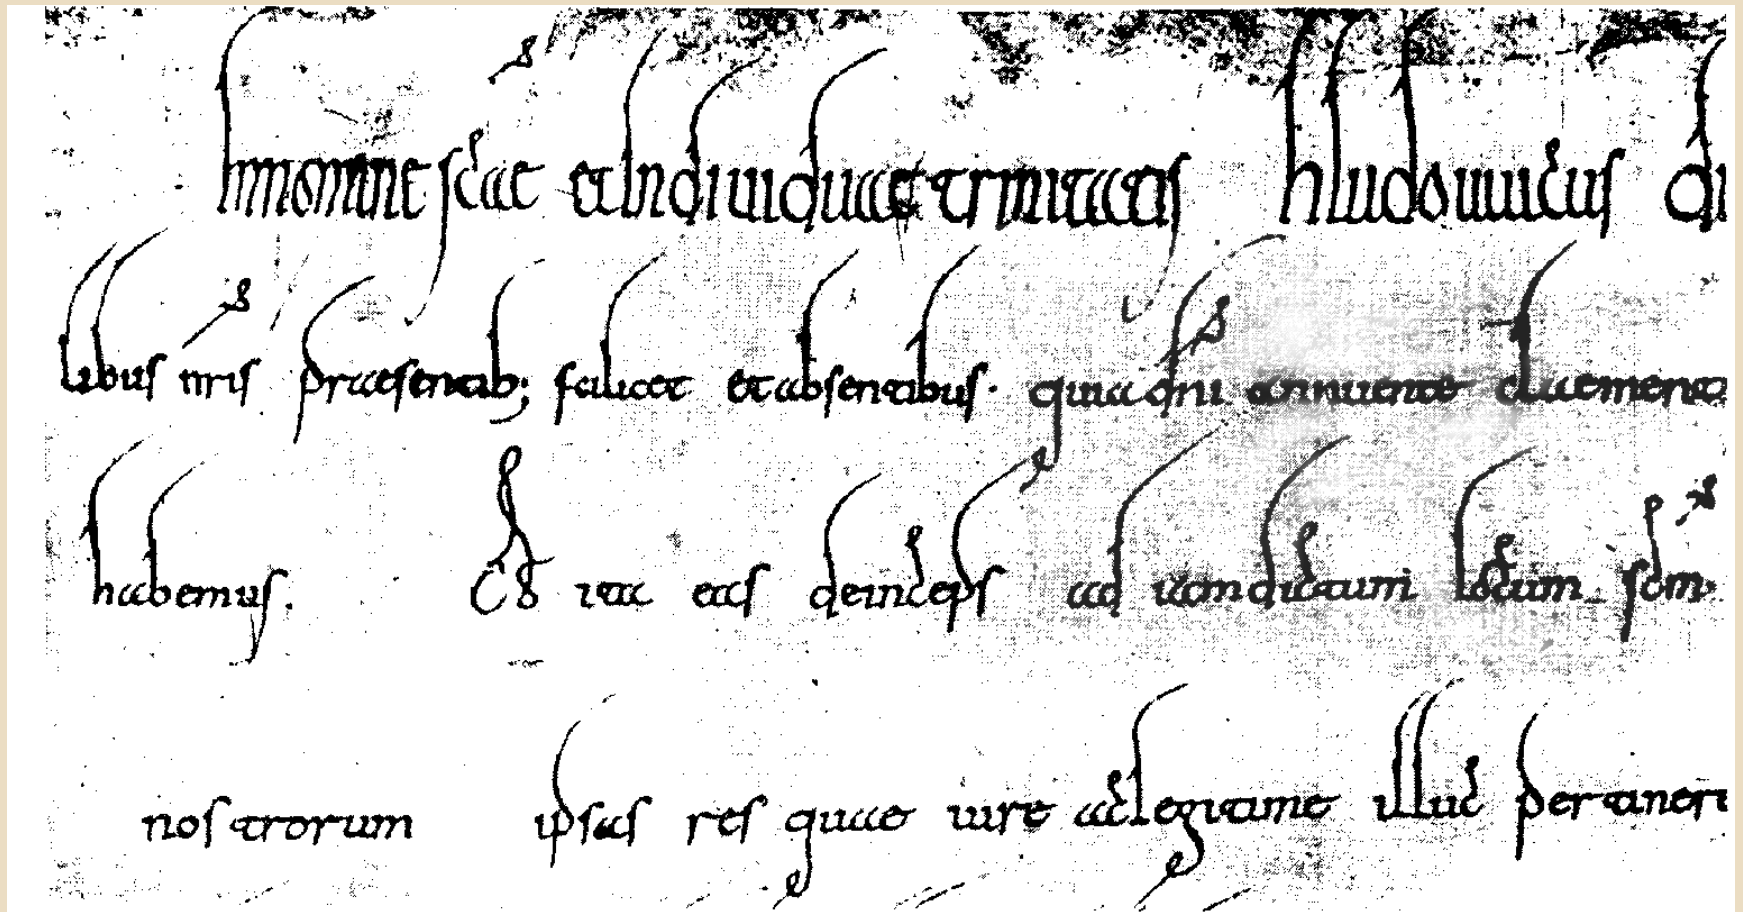 In nomine scae et indiuiduae trinitatis hludouuicus di
libus nris praesentib; scilicet et absentibus. quia dni annuente clementi
habemus. ita eas deinceps ad iam dictum locum scm
nostrorum ipsas res quae iure ac legitime illuc pertinere